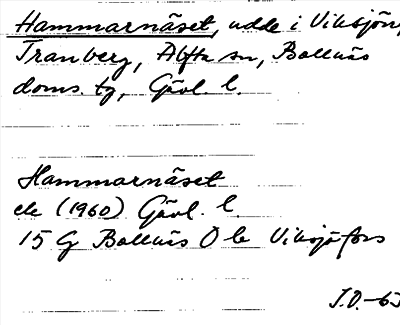 Hammarnäset, udde i Viksjön,
Tranberg, Alfta sn, Bollnäs
doms. tg, Gävl. l.
Hammarnäset
ek (1960) Gävl. l.
15 G Bollnäs O b Viksjöfors
J.O.-63